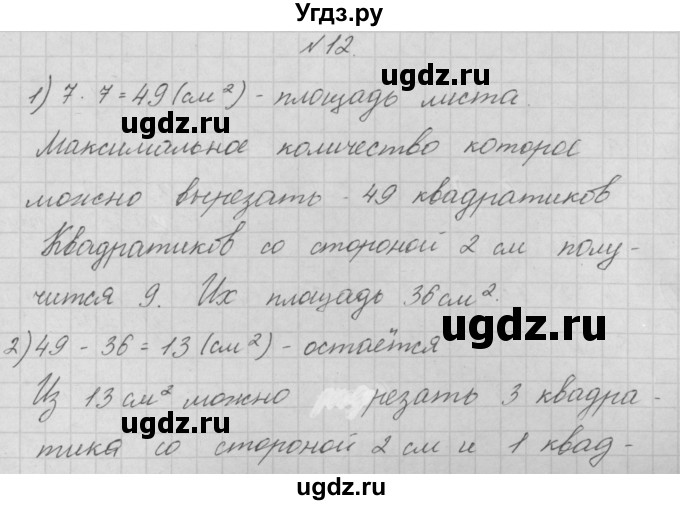 Угдз.ру
№12.
ugdz.ru
1) 7 · 7 = 49 (см²) - площадь листа.
ugdz.ru
Максимальное количество которое
можно вырезать - 49 квадратиков
ugdz.ru
Квадратиков со стороной 2 см полу-
чится 9. Их площадь 36 см².
ugdz.ru
2) 49 - 36 = 13 (см²) - остаётся
ugdz.ru
Из 13 см² можно резать 3 квадра-
ugdz.ru
тика со стороной 2 см и 1 квад-
ugdz.ru